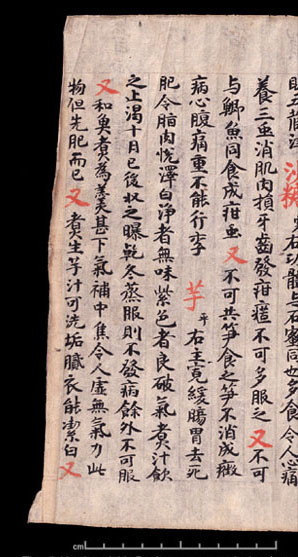 沙糖 寒 右功體与石蜜同也多食令人心痛
養三虫消肌肉損牙齒發疳不可多服之又不可
与鯽魚同食成疳虫又不可共笋食之笋不消成癥
病心腹痛重不能行李 芋 平 右主寬緩腸胃去死
肥令脂肉悅澤白淨者無味紫色者良破氣煮汁飲
之止渴十月已後收之曝乾冬蒸服則不發病餘外不可服
又和魚煮為羹甚下氣補中焦令人虛無氣力此
物但先肥而已又煮生芋汁可洗垢膩衣能潔白又
cm